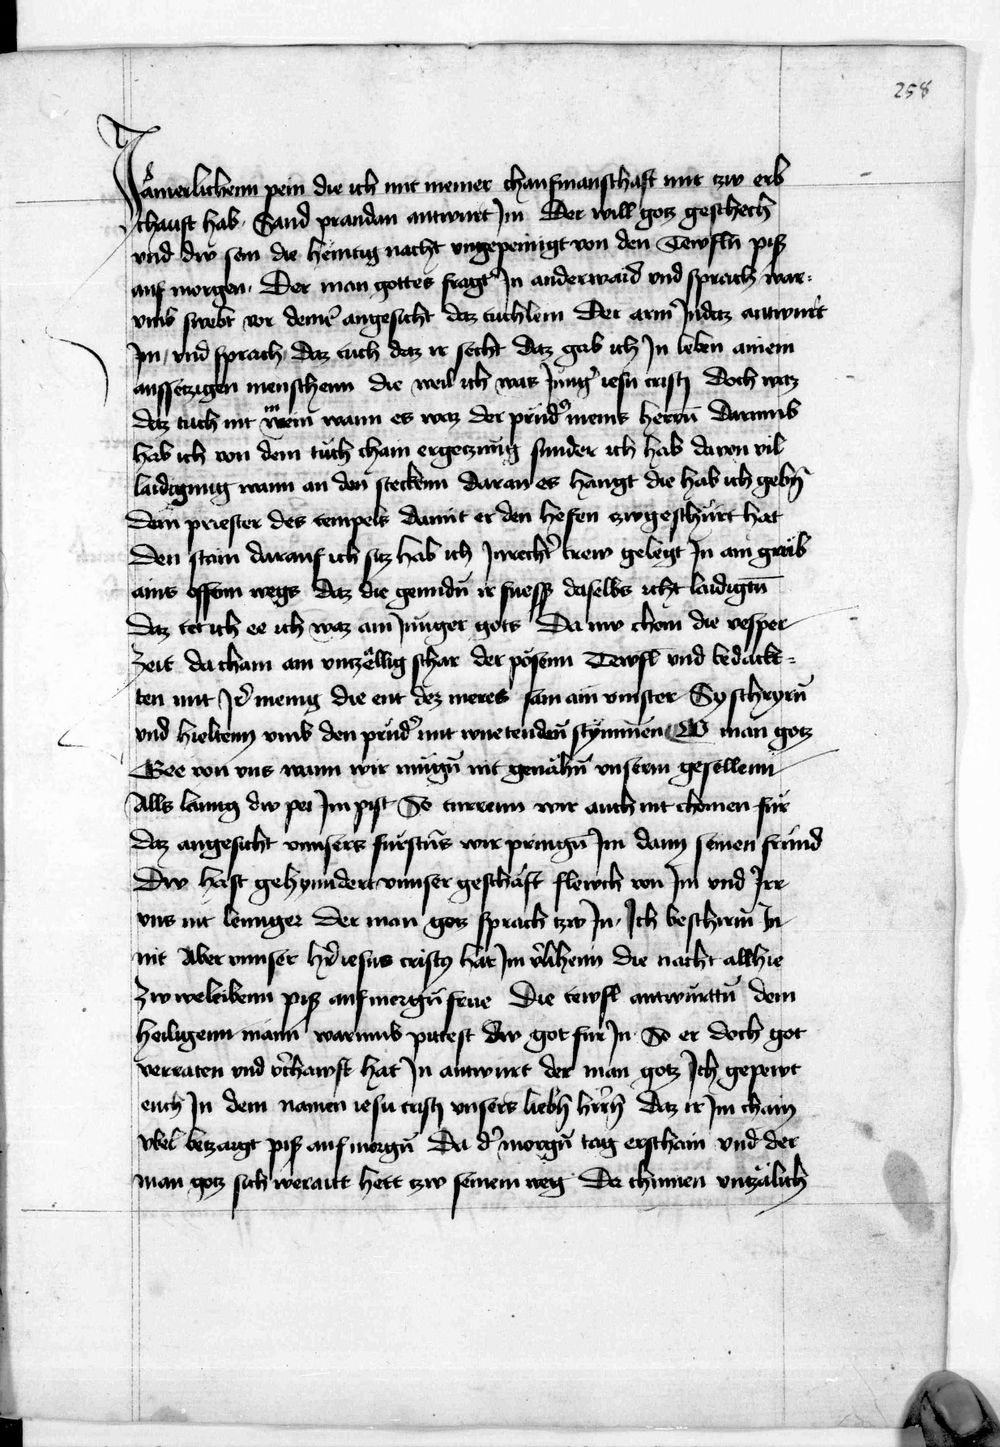 258
Jämerlichenn pein die ich mit meiner chaufmanschaft mir tzw erb
chauft hab. Sand prandan antwurt Jm Der will gotz geschech
vnd dw sein die heintig nacht vngepeinigt von den Tewfln piß
auf morgen. Der man gottes fragt Jn anderwaid vnd sprach war=
vmb swebt vor deinem angesicht daz tuchlein Der arm Judas antwurt
Jm vnd sprach Daz tuch daz ir secht Daz gab ich Jn leben ainem
aussetzigen menschenn die weil ich was Junger iesu cristi Doch waz
daz tuch nit mein wann es waz der prüder meins herren Darumb
hab ich von dem tuch chain ergetzung sunder ich hab davon vil
laidigung wann an den steckenn Daran es hangt die hab ich gebn
dem priester des tempels damit er den hefen zwgeschürt hat
Den stain darauf ich sitz hab ich Jn rechter trew gelegt Jn ain grüb
ains offem wegs daz die gennden ir fuess daselbs icht laidigtn
daz tet ich ee ich waz ain Junger gots Da nw chom die vesper
Zeit da cham ain vntzellig schar der pösenn Tewfl vnd bedackt=
ten mit Jr menig die ent dez meres sam ain vinster Sy schryrn
vnd hieltenn vmb den prüder mit wuetenden stymmen O man gotz
Gee von vns wann wir mugn nit genahn vnserm gesellenn
Alls lanng dw pei Jm pist So turrenn wir auch nit chomen für
daz angesicht vnnsers fürstns wir pringn Jm dann seinen fründ
Dw hast gehynndert vnnser geschäft flewch von Jm vnd Jrr
vns nit lennger Der man gotz sprach tzw Jn. Jch beschirm Jn
nit Aber vnnser her iesus cristus hat Jm verlihenn die nacht allhie
Zw weleibenn piß auf morgn frue Die tewfl antwurttn dem
heiligenn mann warumb pittest dw got für Jn So er doch got
verraten vnd verchawft hat Jn antwurt der man gotz Jch gepewt
euch Jn dem namen iesu cristi vnsers liebn herrn Daz ir Jm chain
vbel betzaigt piß auf morgn Da der morgn tag erschain vnd der
man gotz sich weraitt hett tzw seinem weg Da chumen vntzälich